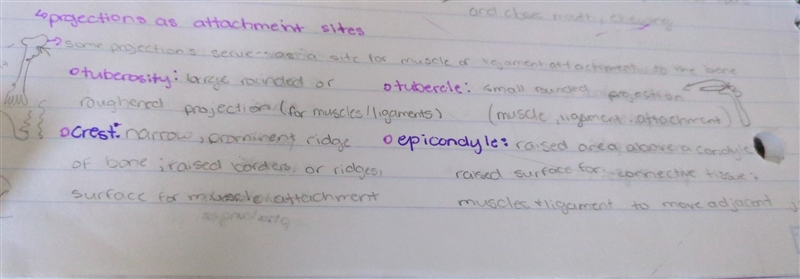 and close mouth, chewing
↳projections as attachment sites
→some projections serve as a site for muscle or ligament attachment to the bone
otuberosity: large rounded or
roughened projection (for muscles/ligaments)
otubercle: small rounded projection
(muscle, ligament attachment)
ocrest: narrow, prominent ridge
of bone; raised borders or ridges,
surface for muscle attachment
oepicondyle: raised area above a condyle
raised surface for connective tissue,
muscles + ligament to move adjacent